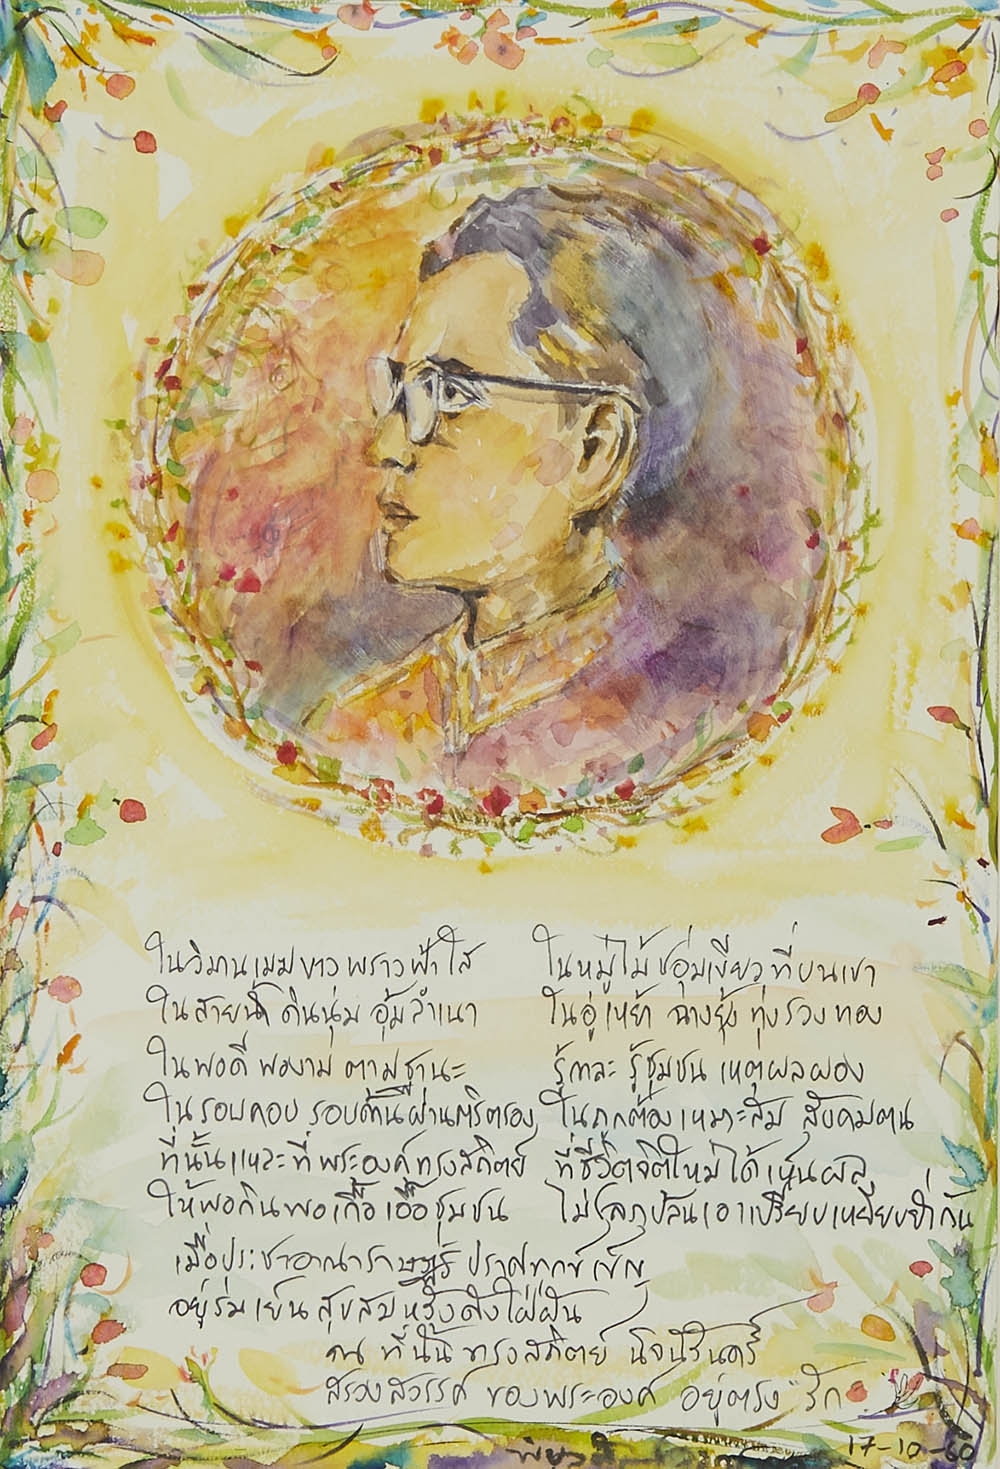 ในวิมานเมฆขาวพราวฟ้าใส ในหมู่ไม้ชอุ่มเขียวที่บนเขา
ในสายน้ำ ดินนุ่ม อุ้มลำเนา ในอู่เหย้า ฉางยุ้ง ทุ่งรวงทอง
ในพอดี พองาม ตามฐานะ รู้กาละ รู้ชุมชน เหตุผลผอง
ในรอบคอบ รอบด้านผ่านตริตรอง ในถูกต้อง เหมาะสม สังคมตน
ที่นั้นแหละที่พระองค์ทรงสถิตย์ ที่ชีวิตจิตใหม่ได้เห็นผล
ให้พอกินพอเกื้อเอื้อชุมชน ไม่โลภปล้นเอาเปรียบเหยียบย่ำกัน
เมื่อประชาอาณาราษฎร์ปราศทุกข์เข็ญ
อยู่ร่มเย็นสุขสมหวังดังใฝ่ฝัน
ณ ที่นั้น ทรงสถิตย์ นิจนิรันดร์
สรวงสวรรค์ ของพระองค์ อยู่ตรง "รัก"
17-10-60